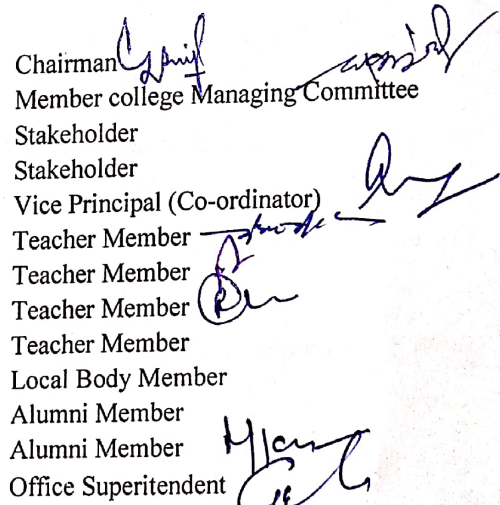 Chairman
Member college Managing Committee
Stakeholder
Stakeholder
Vice Principal (Co-ordinator)
Teacher Member
Teacher Member
Teacher Member
Teacher Member
Local Body Member
Alumni Member
Alumni Member
Office Superitendent